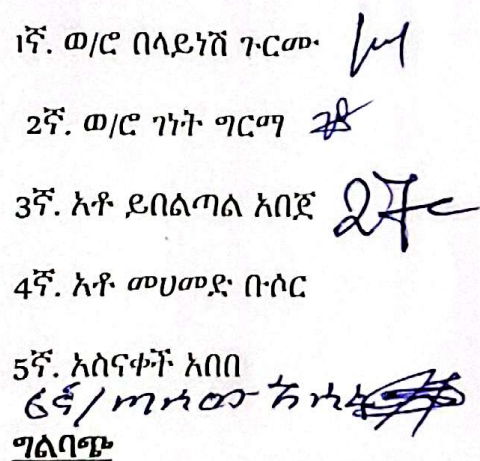 1ኛ. ወ/ሮ በላይነሽ ጉርሙ
2ኛ. ወ/ሮ ገነት ግርማ
3ኛ. አቶ ይበልጣል አበጀ
4ኛ. አቶ መሀመድ ቡሶር
5ኛ. አስናቀች አበበ
6ኛ/
ግልባጭ